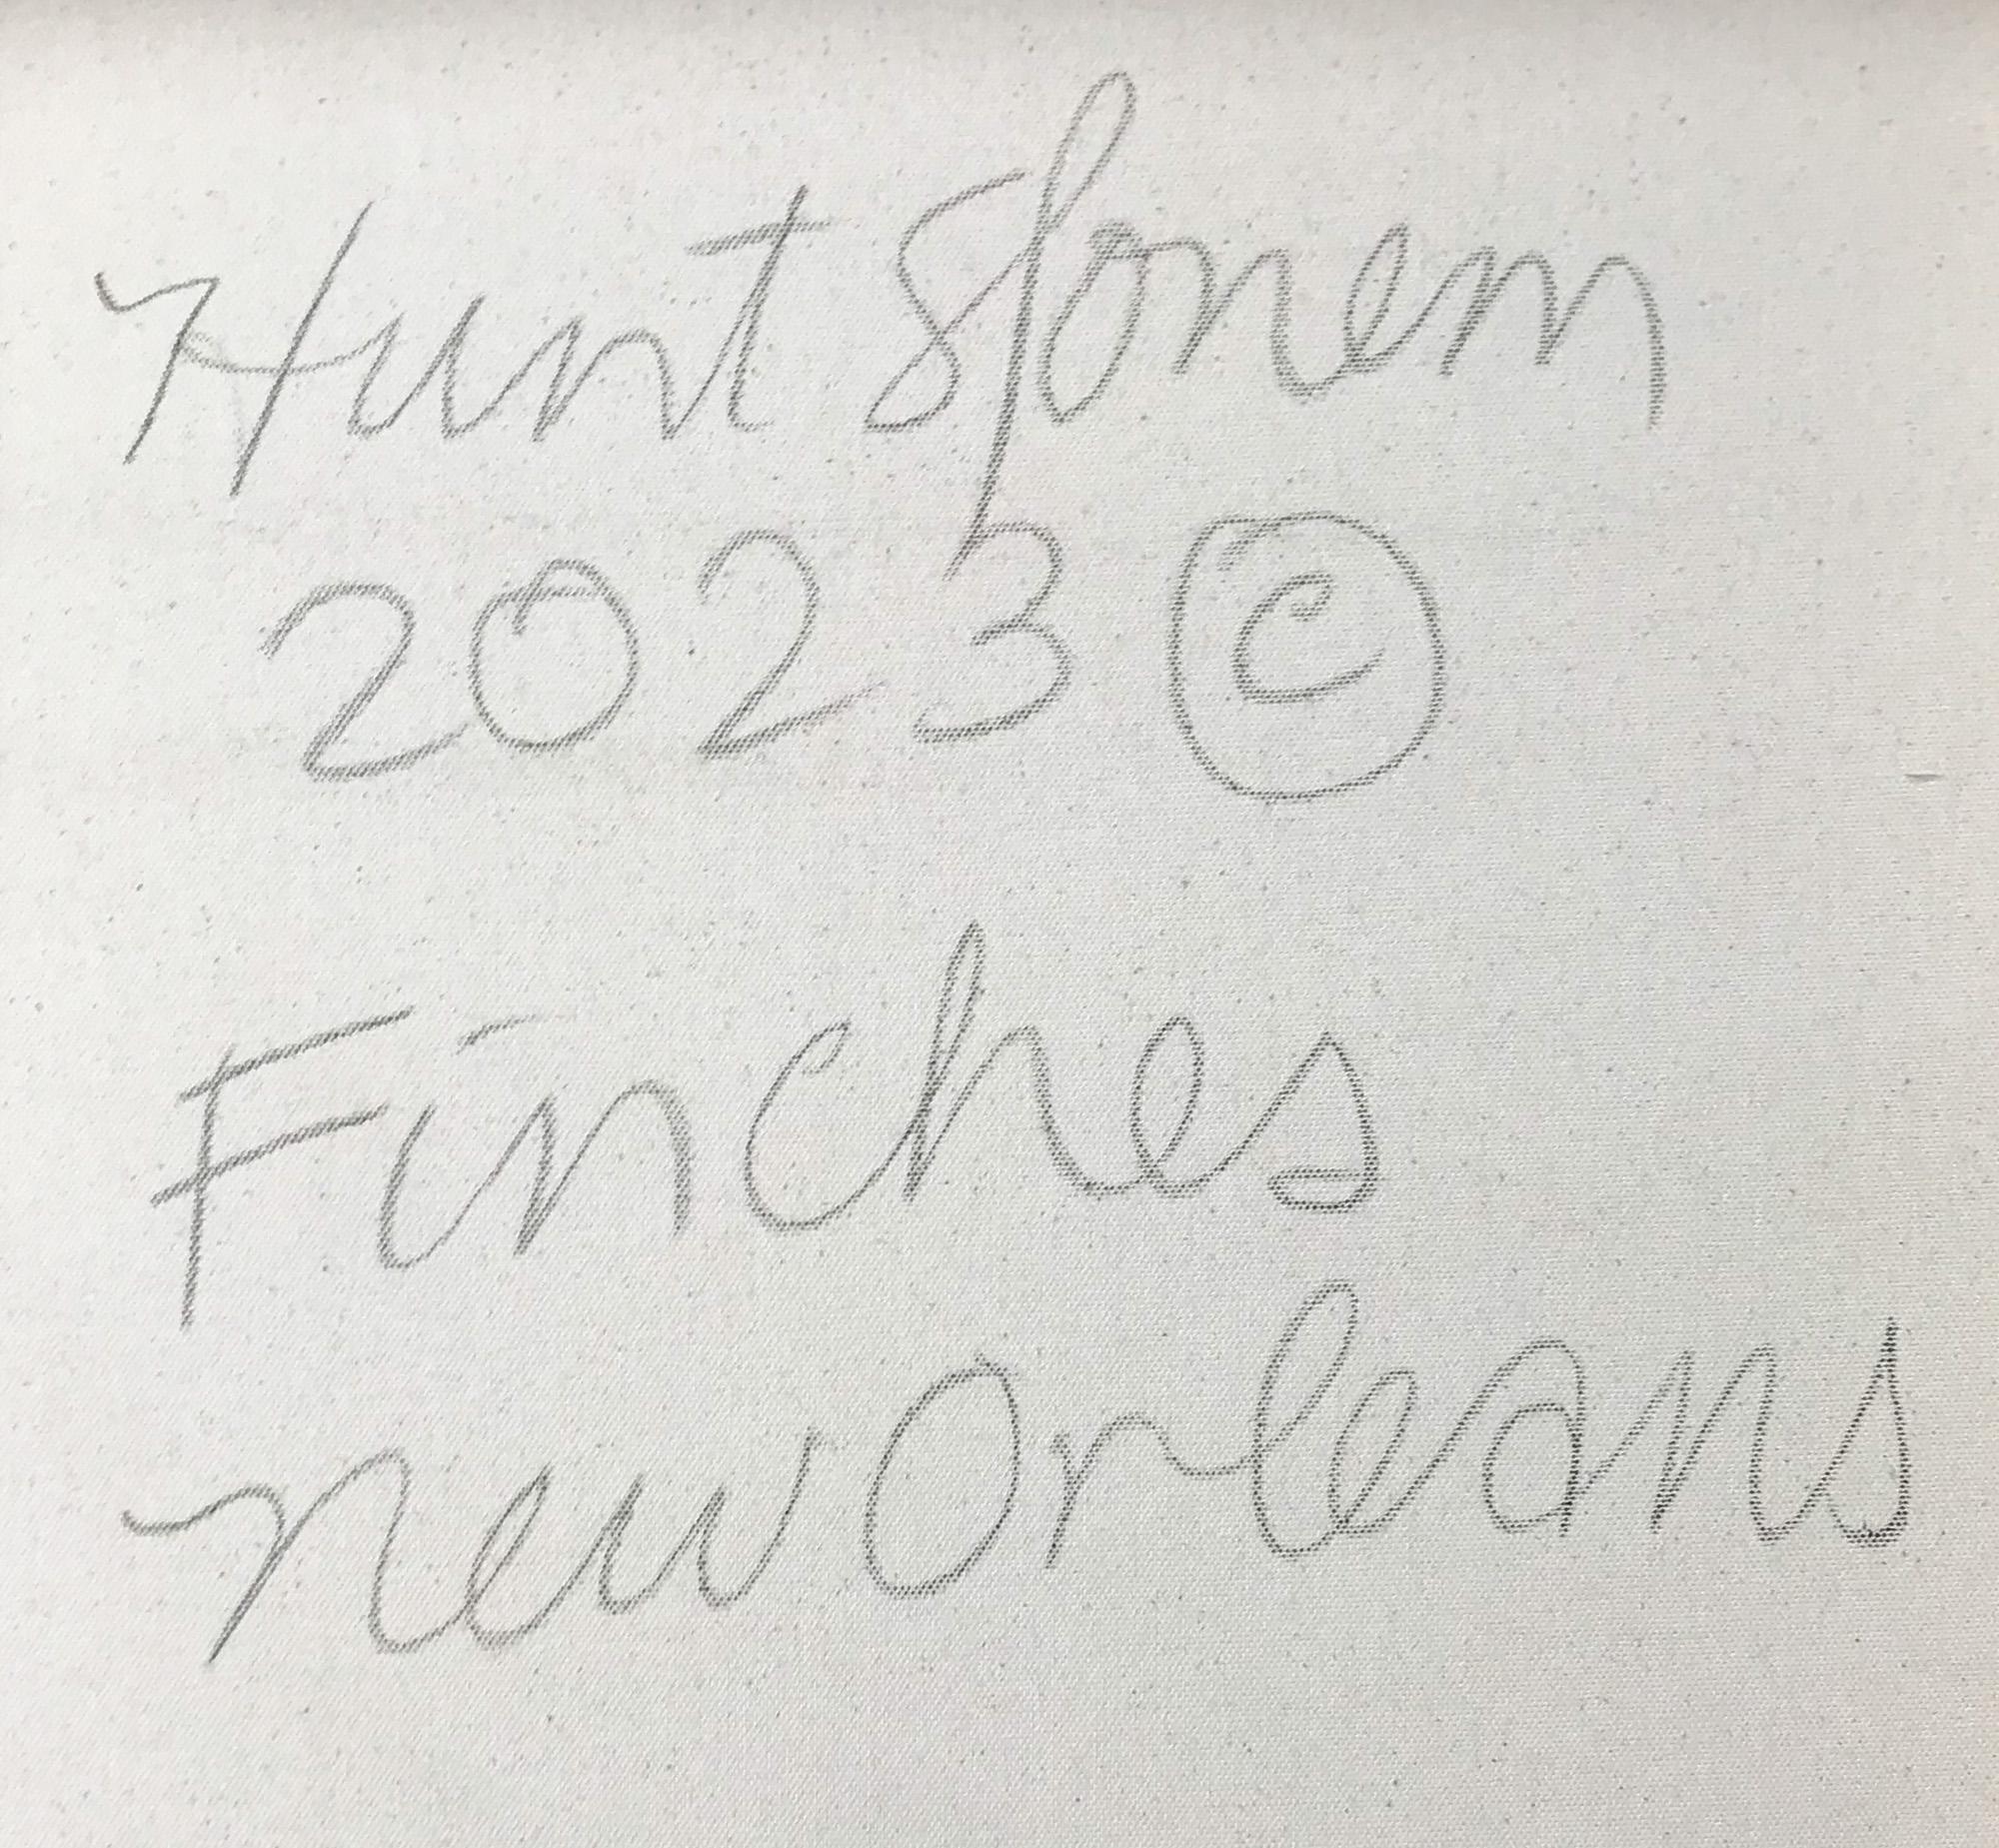 Hunt Slonem
2023 ©
Finches
New Orleans